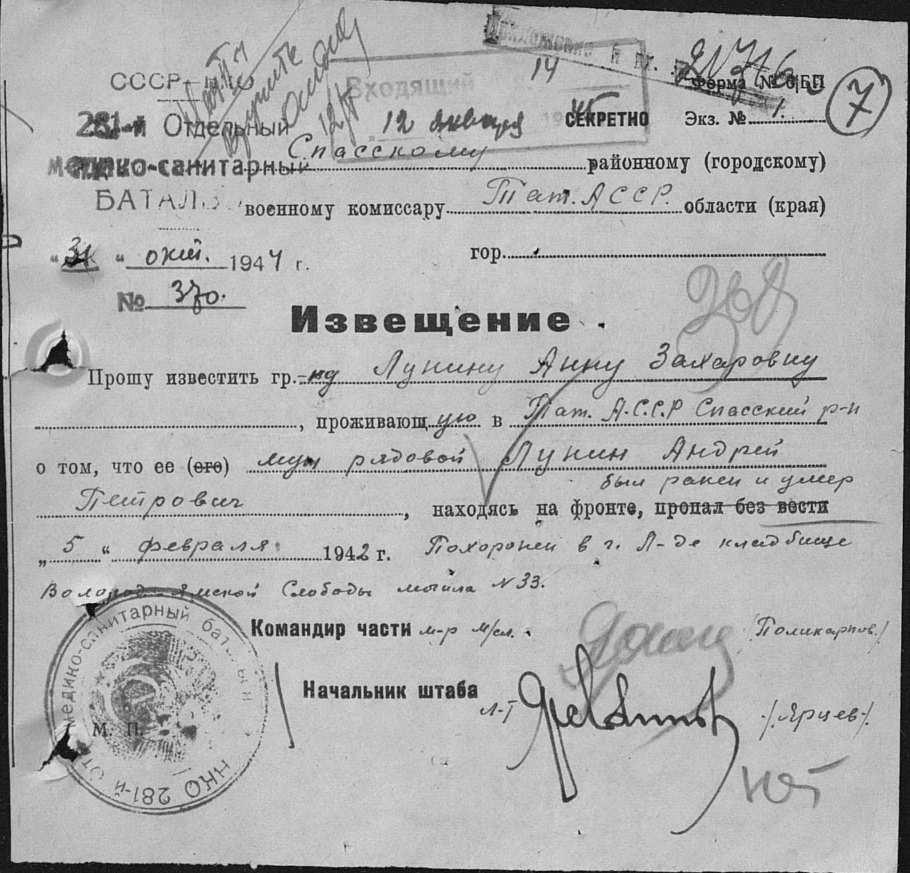 Форма № 2/БП
СССР-НКО
Входящий
14
7
281-й Отдельный
12 января
СЕКРЕТНО
Экз. № 1.
медико-санитарный
Спасскому районному (городскому)
БАТАЛЬ
военному комиссару Тат. АССР. области (края)
"31" окт. 1944 г.
гор.
№ 370.
Извещение
Прошу известить гр.-ку Лунину Анну Захаровну
, проживающую в Тат. А.С.С.Р Спасский р-н
о том, что ее (его) муж рядовой Лунин Андрей
был ранен и умер
Петрович, находясь на фронте, пропал без вести
"5" февраля 1942 г. Похоронен в г. Л-де кладбище
Слободы могила № 33.
Командир части м-р м/сл. /Поликарпов/
Начальник штаба
л-т /Ярцев/
М. П.
НКО 281-й Отд медико-санитарный баталь